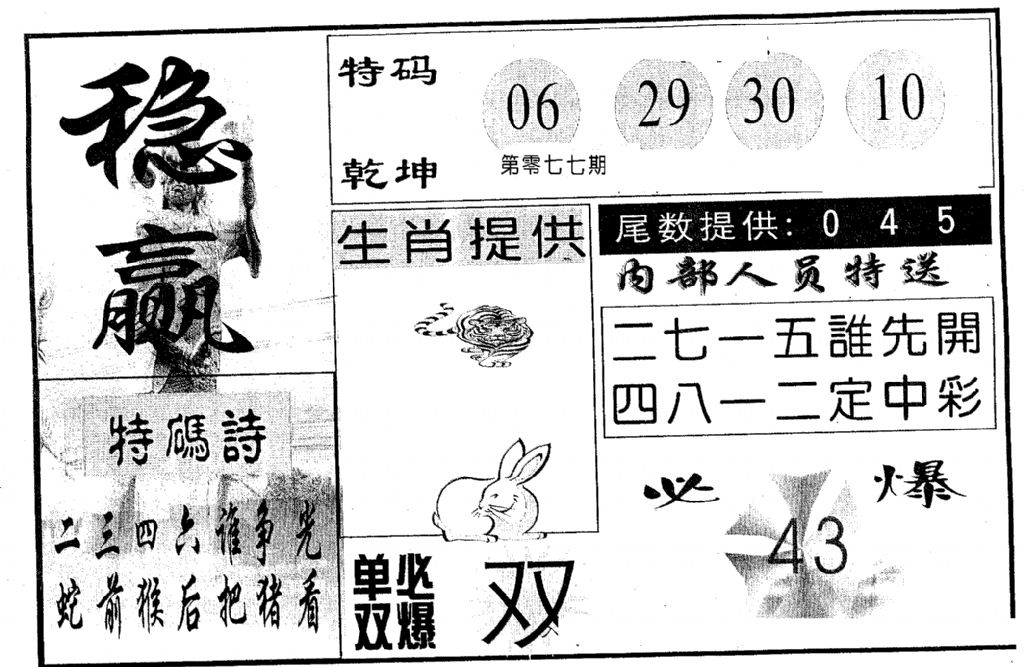 稳
赢
特码
06 29 30 10
乾坤
第零七七期
生肖提供
尾数提供: 0 4 5
内部人员特送
二七一五誰先開
四八一二定中彩
特碼詩
二三四六谁争光
蛇前猴后把猪看
必爆
43
单双
必爆
双